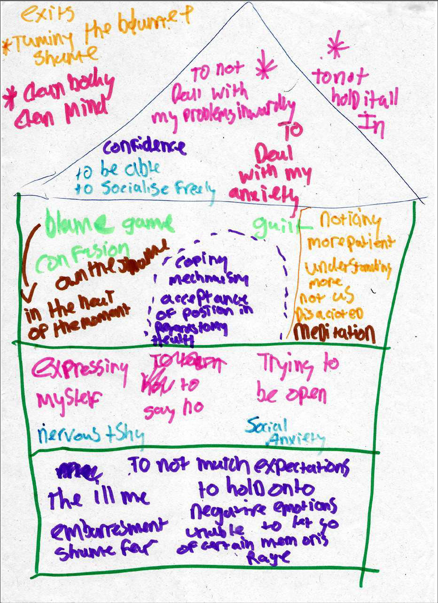 exits
* Turning the blame &
shame
* clean body
clean mind
To not *
Deal with
my problems inwardly
*
to not
hold it all
In
To
Deal
with my
anxiety
confidence
to be able
to Socialise freely
blame game
confusion
own the shame
in the heat
of the moment
coping
mechanisms
acceptance
of position in
health
guilt
noticing
more patient
understanding
more
not as
Meditation
expressing
myself
How to
say no
Trying to
be open
nervous + shy
Social
Anxiety
the ill me
embarresment
shame fear
To not match expectations
to hold onto
negative emotions
unable to let go
of certain memoris
Rage